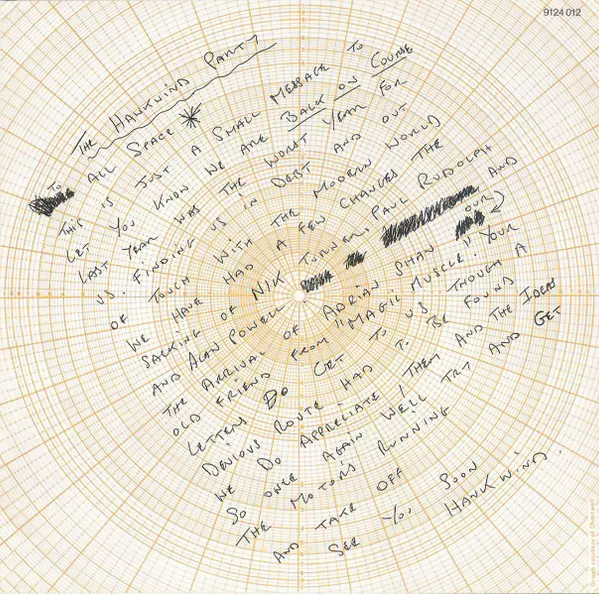 9124 012
THE HANKWIND PARTY
TO ALL SPACE *
THIS IS JUST A SMALL MESSAGE TO
LET YOU KNOW WE ARE BACK ON COURSE
LAST YEAR WAS THE WORST YEAR FOR
US. FINDING US IN DEBT AND OUT
OF TOUCH WITH THE MODERN WORLD
WE HAVE HAD A FEW CHANGES THE
SACKING OF NIK TURNER, PAUL RUDOLPH
AND ALAN POWELL AND
THE ARRIVAL OF ADRIAN SHAW OUR
OLD FRIEND FROM "MAGIC MUSCLE". YOUR
LETTERS DO GET TO US THOUGH A
DEVIOUS ROUTE HAD TO BE FOUND
WE DO APPRECIATE THEM AND THE IDEAS
SO ONCE AGAIN WE'LL TRY AND GET
THE MOTORS RUNNING
AND TAKE OFF
SEE YOU SOON
HANKWIND.
Graph courtesy of Chartwell